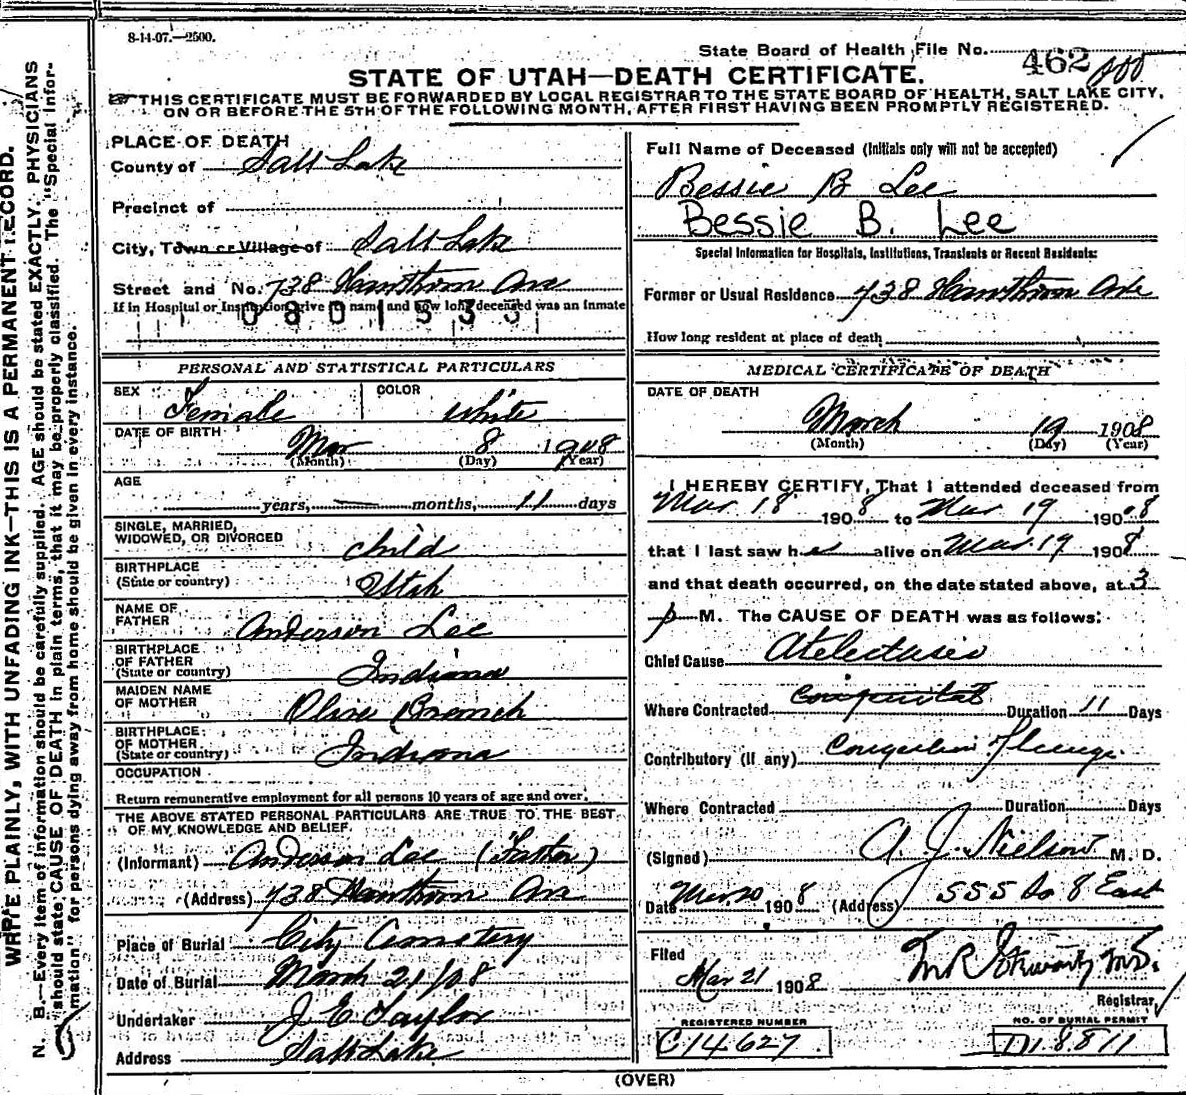 8-14-07.—2500.
State Board of Health File No. 462
STATE OF UTAH—DEATH CERTIFICATE.
THIS CERTIFICATE MUST BE FORWARDED BY LOCAL REGISTRAR TO THE STATE BOARD OF HEALTH, SALT LAKE CITY,
ON OR BEFORE THE 5TH OF THE FOLLOWING MONTH, AFTER FIRST HAVING BEEN PROMPTLY REGISTERED.
WRITE PLAINLY, WITH UNFADING INK—THIS IS A PERMANENT RECORD.
N. B.—Every item of information should be carefully supplied. AGE should be stated EXACTLY. PHYSICIANS
should state CAUSE OF DEATH in plain terms, that it may be properly classified. The "Special Infor-
mation" for persons dying away from home should be given in every instance.
PLACE OF DEATH
County of Salt Lake
Precinct of
City, Town or Village of Salt Lake
Street and No. 738 Hawthorn Ave
If in Hospital or Institution, give its name and how long deceased was an inmate
0801533
PERSONAL AND STATISTICAL PARTICULARS
SEX Female COLOR White
DATE OF BIRTH Mar 8 1908
(Month) (Day) (Year)
AGE
years, months, 11 days
SINGLE, MARRIED,
WIDOWED, OR DIVORCED child
BIRTHPLACE
(State or country) Utah
NAME OF
FATHER Anderson Lee
BIRTHPLACE
OF FATHER
(State or country) Indiana
MAIDEN NAME
OF MOTHER Olive Branch
BIRTHPLACE
OF MOTHER
(State or country) Indiana
OCCUPATION
Return remunerative employment for all persons 10 years of age and over.
THE ABOVE STATED PERSONAL PARTICULARS ARE TRUE TO THE BEST
OF MY KNOWLEDGE AND BELIEF.
(Informant) Anderson Lee (Father)
(Address) 738 Hawthorn Ave
Place of Burial City Cemetery
Date of Burial March 21/08
Undertaker J E Taylor
Address Salt Lake
Full Name of Deceased (Initials only will not be accepted)
Bessie B Lee
Bessie B. Lee
Special Information for Hospitals, Institutions, Transients or Recent Residents:
Former or Usual Residence 738 Hawthorn Ave
How long resident at place of death
MEDICAL CERTIFICATE OF DEATH
DATE OF DEATH
March 19 1908
(Month) (Day) (Year)
I HEREBY CERTIFY, That I attended deceased from
Mar 18 1908 to Mar 19 1908
that I last saw her alive on Mar. 19 1908
and that death occurred, on the date stated above, at 3
p M. The CAUSE OF DEATH was as follows:
Chief Cause Atelectasis
Where Contracted Congenital Duration 11 Days
Contributory (if any)
Where Contracted Duration Days
(Signed) A. J. Nielson M. D.
Date Mar 20 1908 (Address) 555 So 8 East
Filed
Mar 21 1908
Registrar
REGISTERED NUMBER NO. OF BURIAL PERMIT
C14627 D1.8811
(OVER)